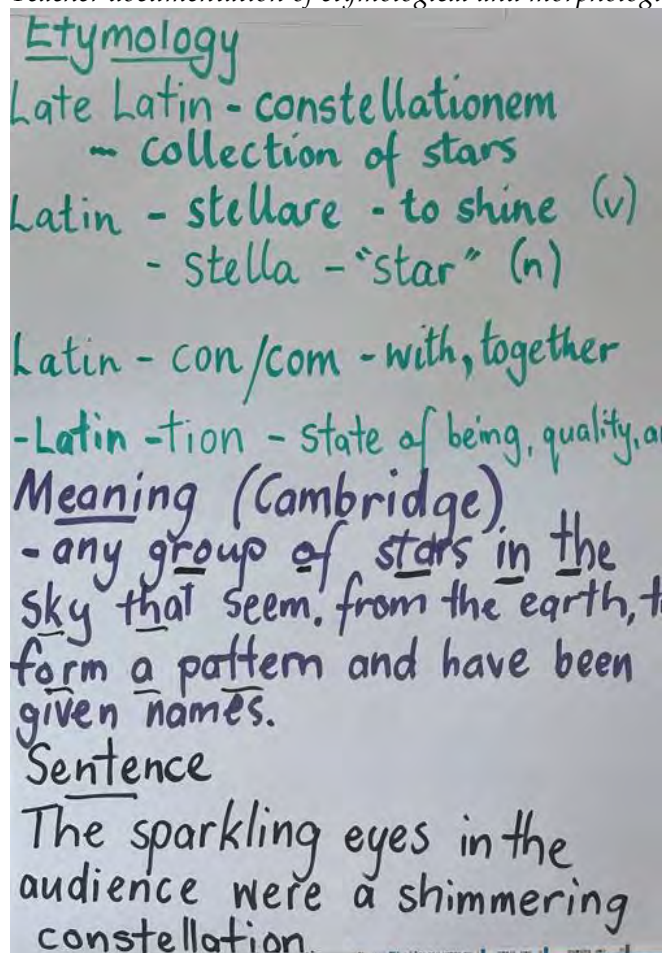 Teacher documentation of etymological and
Etymology
Late Latin - constellationem
- collection of stars
Latin - stellare - to shine (v)
- stella - "star" (n)
Latin - con/com - with, together
-Latin -tion - state of being, quality,
Meaning (Cambridge)
- any group of stars in the
sky that seem, from the earth,
form a pattern and have been
given names.
Sentence
The sparkling eyes in the
audience were a shimmering
constellation.